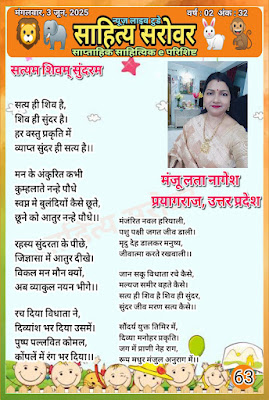 मंगलवार, 3 जून, 2025
न्यूज लाइव टुडे
वर्ष : 02 अंक : 32
साहित्य सरोवर
साप्ताहिक साहित्यिक e परिशिष्ट
सत्यम शिवम् सुंदरम
सत्य ही शिव है,
शिव ही सुंदर है।
हर वस्तु प्रकृति में
व्याप्त सुंदर ही सत्य है।।
मन के अंकुरित कभी
कुम्हलाते नन्हे पौधे
स्वप्न मे बुलंदियों कैसे छूते,
छूने को आतुर नन्हे पौधे।।
रहस्य सुंदरता के पीछे,
जिज्ञासा में आतुर दीखे।
विकल मन मौन क्यों,
अब व्याकुल नयन भीगे।।
रच दिया विधाता ने,
दिव्यांश भर दिया उसमें।
पुष्प पल्लवित कोमल,
कोंपलें में रंग भर दिया।।
मंजू लता नागेश
प्रयागराज, उत्तर प्रदेश
मंजरित नवल हरियाली,
पशु पक्षी जगत जीव डाली।
मृदु देह डालकर मनुष्य,
जीवात्मा करते रखवाली।।
जान सकू विधाता रचे कैसे,
मल्यज समीर बहते कैसे।
सत्य ही शिव है शिव ही सुंदर,
सुंदर जीव मरण सत्य कैसे।।
सौंदर्य युक्त तिमिर में,
दिव्या मनोहर प्रकृति।
जग में प्राणी नेह राग,
रूप मधुर मंजुल अनुराग में।।
63